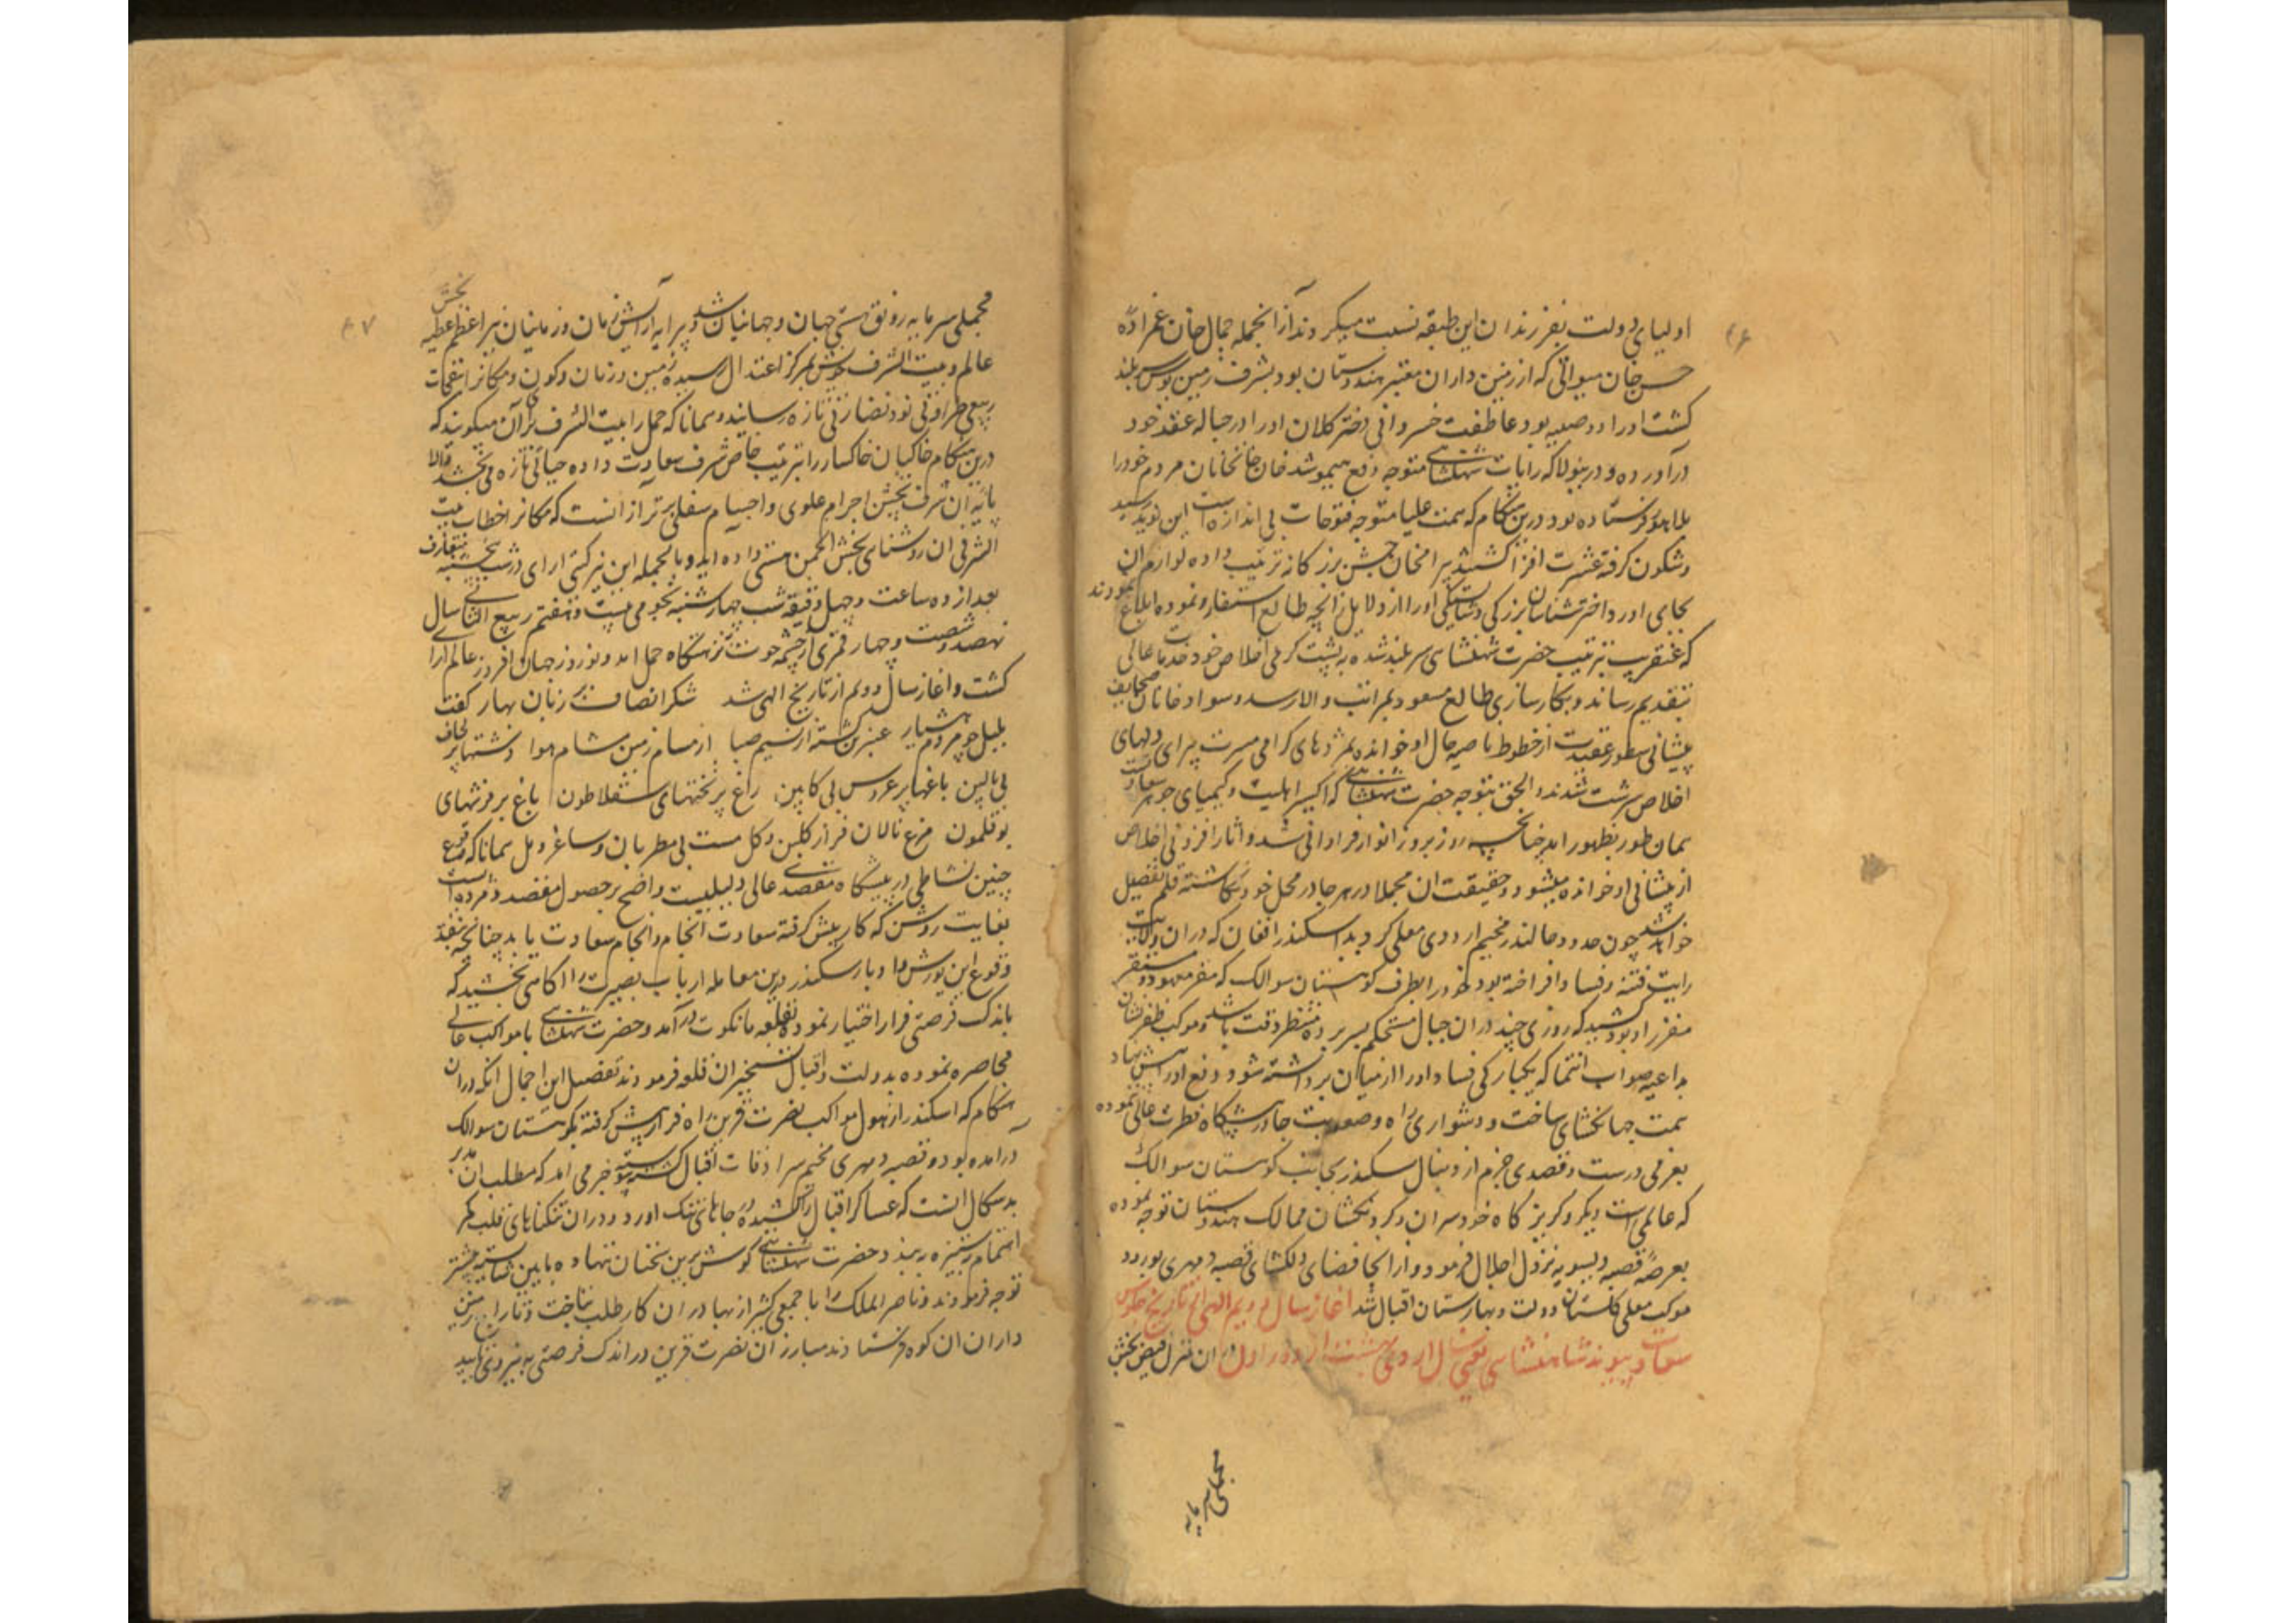 ۴۶
اولیای دولت بفرزندان این طبقه نسبت میکردند از انجمله جمال خان عمزاده
حسن خان میواتی که از زمین داران معتبر هندوستان بود بشرف زمین بوس سربلند
کشت او را دو صبیه بود عاطفت خسروانی دختر کلان او را در حباله عقد خود
درآورده و درینولا که رایات شهنشاهی متوجه دفع هیمو شد خان خانخانان مردم خود را
بلاهور فرستاده بود درین هنکام که همت علیا متوجه فتوحات بی اندازه است این نوید رسید
و شکون کرفته عشرت افزا کشتند بیرامخان جشن بزرکانه ترتیب داده لوازم آن
بجای اورد و اخترشناسان بزرکی و شایستکی او را از دلایل زایچه طالع استسفار نموده ابلاغ نمودند
که عنقریب بترتیب حضرت شهنشاهی سربلند شده به پشت کرمی اخلاص خود خدمات عالی
بتقدیم رساند و بکارسازی طالع مسعود بمراتب والا رسد و سواد خانان صحایف
پیشانی سطور عقیدت از خطوط ناصیه حال او خوانده بمژدهای کرامی مسرت پیرای دلهای
اخلاص سرشت شدند و الحق بتوجه حضرت شهنشاهی که اکسیر اهلیت و کیمیای جوهر سعادت است
همان طور بظهور امد چنانچه روز بروز انوار فراوانی شد و اثار افزونی اخلاص
از پیشانی او خوانده میشود و حقیقت ان مجملا در هر جا در محل خود نکاشته قلم تفصیل
خواهد شد چون حدود جالندر مخیم اردوی معلی کردید اسکندر افغان که در ان ولایت
رایت فتنه و فساد افراخته بود خود را بطرف کوهستان سوالک که مفر معهود و مستقر
مقرر او بود کشید که روزی چند در ان جبال مستحکم بسر برده منتظر وقت باشد و موکب ظفر نشان
براعیه صواب انتما که یکبارکی فساد او را از میان برداشته شود دفع او را پیش نهاد
همت جهانکشای ساخت و دشواری راه و صعوبت جا در پیشکاه فطرت عالی نموده
بعزمی درست و قصدی جزم از دنبال سکندر بجانب کوهستان سوالک
که عالمی است دیکر و کریزکاه خودسران و کردنکشان ممالک هندوستان توجه نموده
بعرصه قصبه دیسویه نزول اجلال فرمود و از انجا فضای دلکشای قصبه دمهری بورود
موکب معلی کلستان دولت و بهارستان اقبال شد اغاز سال دویم الهی از تاریخ جلوس
سعادت پیوند شاهنشاهی یعنی سال اردی بهشت از دور اول در ان منزل فیض بخش
مجملی سرمایه
۴۷
مجملی سرمایه رونق هستی جهان و جهانیان شد و پیرایه آرایش زمان و زمانیان نیر اعظم عطیه بخش
عالم و بیت الشرف خویش بمرکز اعتدال رسیده زمین و زمان و کون و مکانرا بنفحات
ربیعی طراوتی نو و نضارتی تازه رسانید و همانا که حمل را بیت الشرف برای آن میکویند که
درین هنکام خاکیان خاکسار را بترتیب خاص شرف سعادت داده حیاتی تازه می بخشد والا
پایه ان شرف بخش اجرام علوی و اجسام سفلی برتر از انست که مکانرا خطاب بیت
الشرفی ان روشنای بخش انجمن هستی داده اید و بالجمله این نیر کیتی ارای در شب پنجشنبه متعارف
بعد از ده ساعت و چهل دقیقه شب چهارشنبه نجومی بیست و هفتم ربیع الثانی سال
نهصد و شصت و چهار قمری از چشمه حوت بنزهتکاه حمل امد و نوروز جهان افروز عالم آرا
کشت و اغاز سال دویم از تاریخ الهی شد شکر انصاف بر زبان بهار کفت
بلبل چو مردم هشیار عنبرین کشته از نسیم صبا از مسام زمین مشام هوا دشتها پر لحاف
بی بالین باغها پر عروس بی کابین راغ پر تختهای سقلاطون باغ پر فرشهای
بوقلمون مرغ نالان فراز کلبن و کل مست بی مطربان و ساغر و مل همانا که وقوع
چنین نشاطی در پیشکاه مقصدی عالی دلیلیست واضح بر حصول مقصد و مژده است
بغایت روشن که کار پیش کرفته سعادت انجام و انجام سعادت یابد چنانچه
وقوع این یورش و ادبار سکندر درین معامله ارباب بصیرت را اکاهی بخشید که
باندک فرصتی فرار اختیار نموده بقلعه مانکوت درآمد و حضرت شهنشاهی با مواکب عالی
محاصره نموده بدولت و اقبال تسخیر ان قلعه فرمودند تفصیل این اجمال انکه در ان
هنکام که اسکندر از هول مواکب نصرت قرین راه فرار پیش کرفته بکوهستان سوالک
درآمده بود و قصبه دمهری مخیم سرادقات اقبال کشته پیوسته خبر می امد که مطلب ان مدبر
بدسکال انست که عساکر اقبال را کشیده در جاهای تنک اورد و در ان تنکناهای قلب کمر
اهتمام ستیزه بربندد حضرت شهنشاهی کوش برین سخنان ننهاده بآیین شایسته پیشتر
توجه فرمودند و ناصر الملک را با جمعی کثیر از بهادران کارطلب بتاخت و تاراج زمین
داران ان کوه فرستادند مبارزان نصرت قرین در اندک فرصتی به نیروی تایید